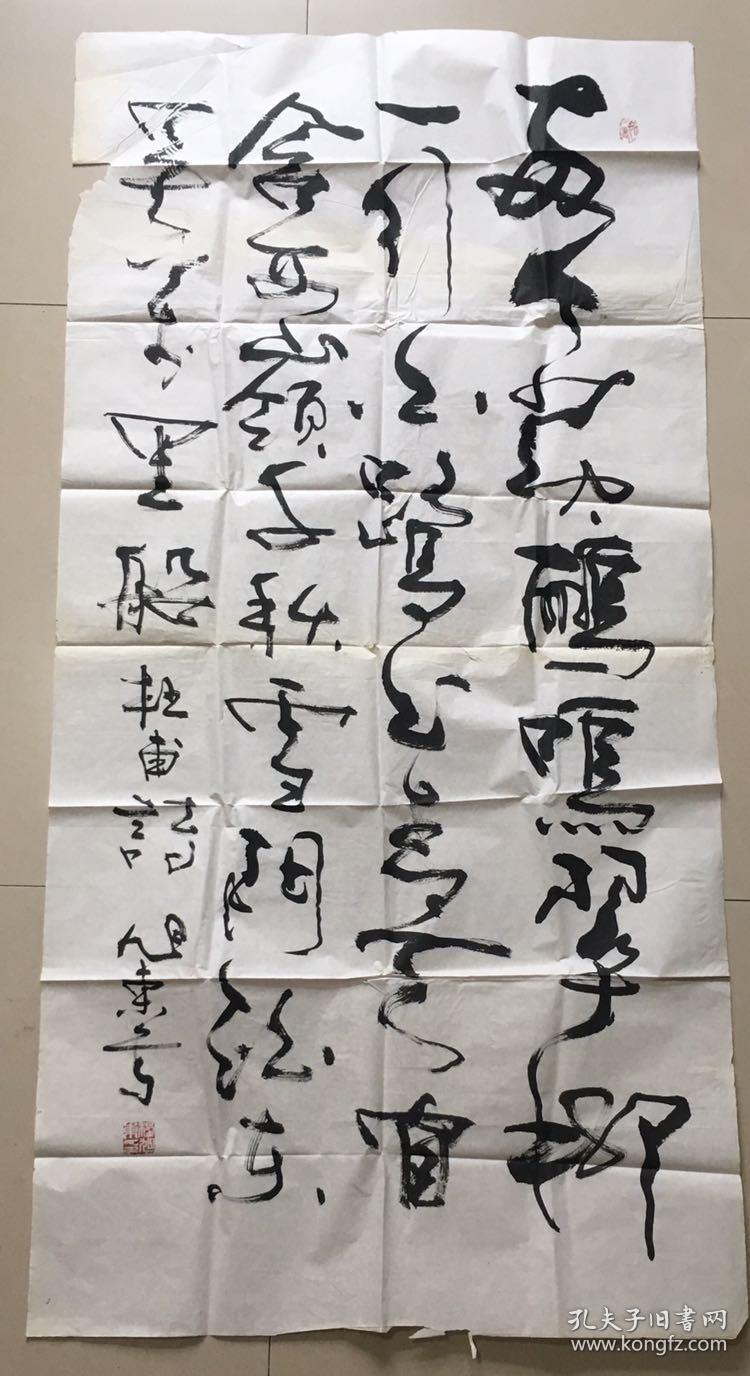 两个黄鸝鳴翠柳
一行白鷺上青天窗
含西嶺千秋雪門泊东
吴万里船 杜甫詩 旭東写
孔夫子旧書网
www.kongfz.com